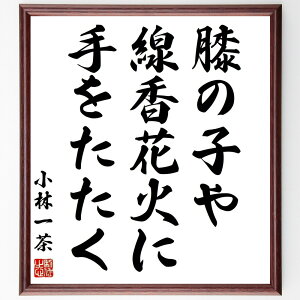 膝の子や
線香花火に
手をたたく
小林一茶